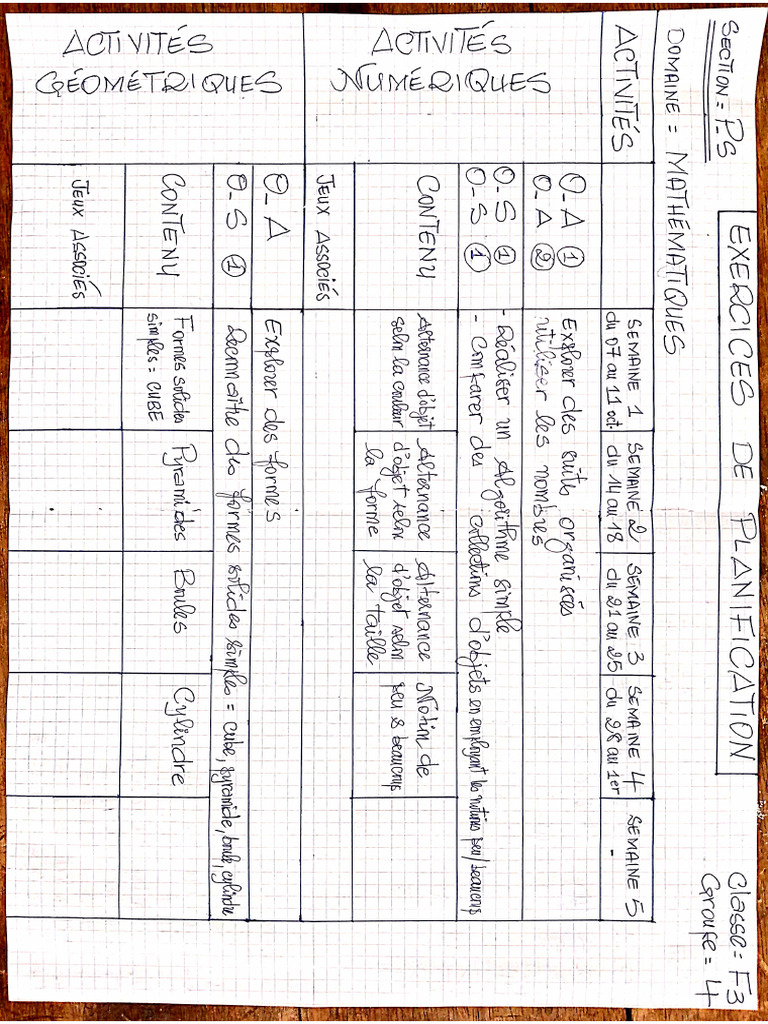 SECTION = P.S
EXERCICES DE PLANIFICATION
Classe = F3
Groupe = 4
DOMAINE = MATHÉMATIQUES
ACTIVITÉS
SEMAINE 1
du 07 au 11 oct.
SEMAINE 2
du 14 au 18
SEMAINE 3
du 21 au 25
SEMAINE 4
du 28 au 1er
SEMAINE 5
-
ACTIVITÉS
NUMÉRIQUES
O_A 1
O_A 2
Explorer des suits organisées
utiliser les nombres
O_S 1
O_S 1
- Réaliser un Algorithme simple
- Comparer des collections d'objets en employant les notions peu/beaucoup
CONTENU
Alternance d'objet
selon la couleur
Alternance
d'objet selon
la forme
Alternance
d'objet selon
la taille
Notion de
peu & beaucoup
JEUX ASSOCIÉS
ACTIVITÉS
GÉOMÉTRIQUES
O_A
Explorer des formes
O_S 1
Reconnaître des formes solides simples = cube, pyramide, boule, cylindre
CONTENU
Formes solides
simples = CUBE
Pyramides
Boules
Cylindre
JEUX ASSOCIÉS